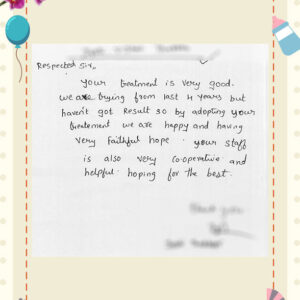 Respected Sir,
Your treatment is very good.
we are trying from last 4 years but
haven't got result so by adopting your
treatement we are happy and having
very faithful hope . your staff
is also very co-operative and
helpful. hoping for the best.